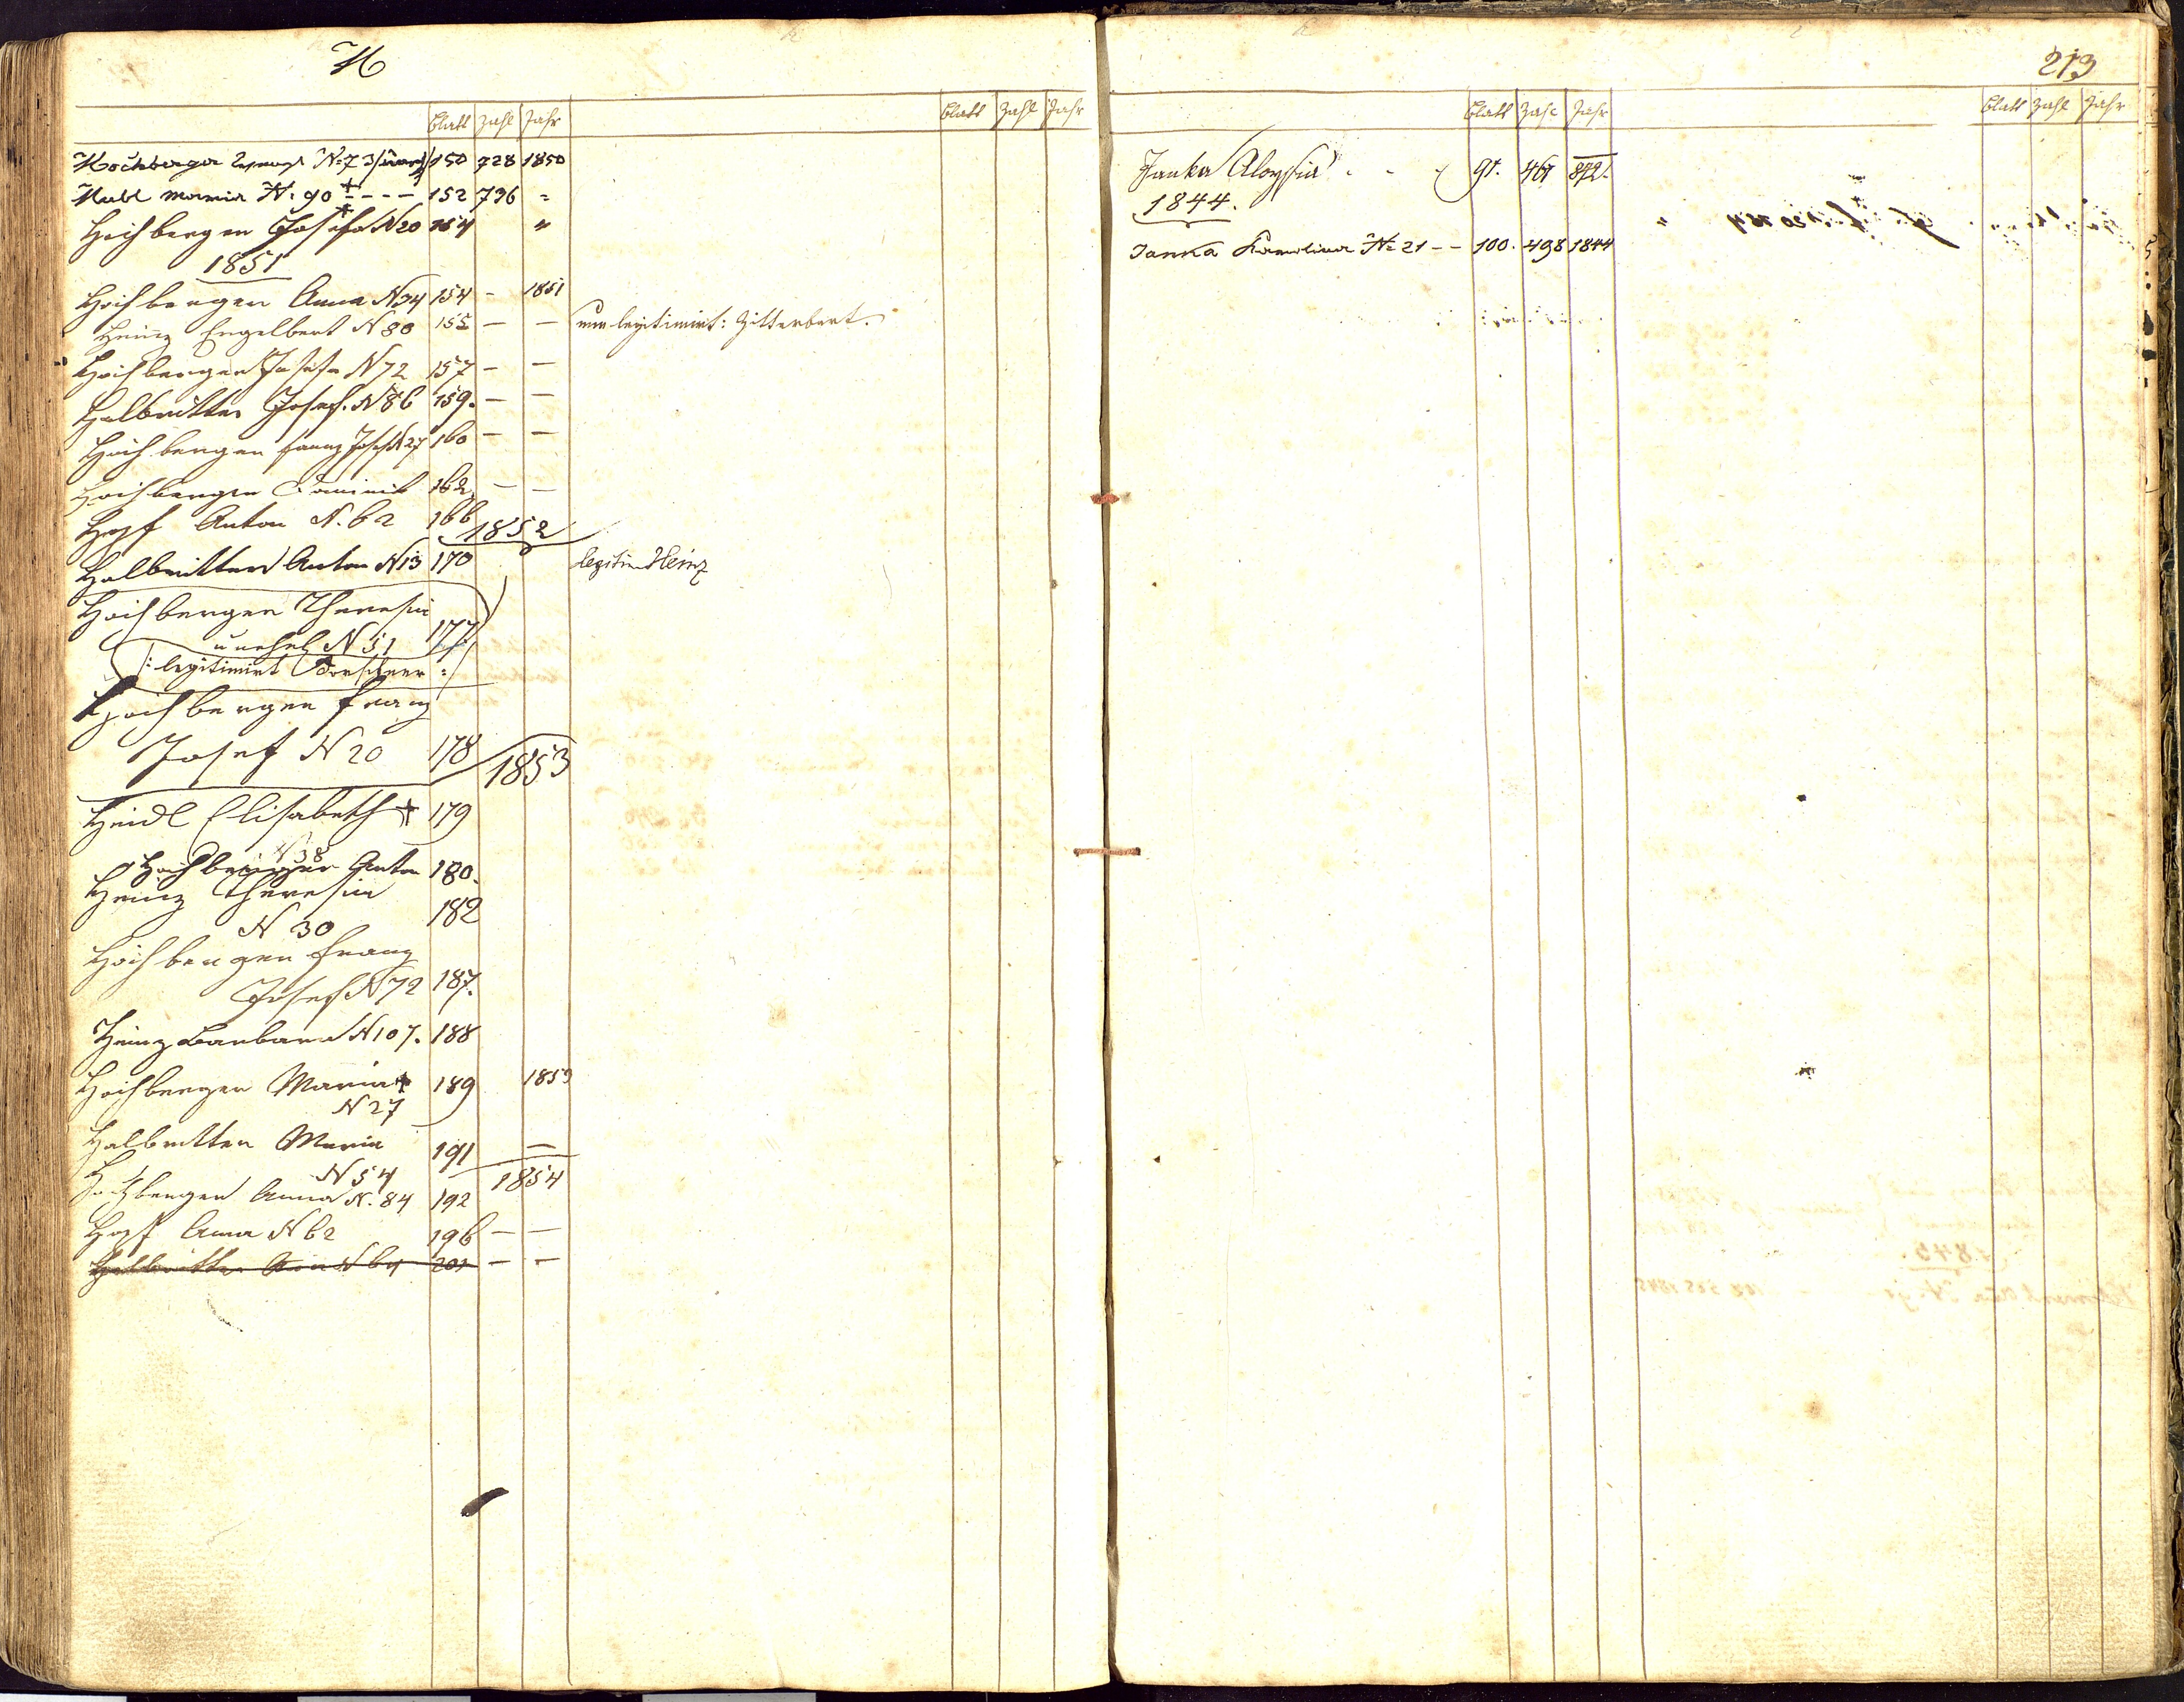 H
Blatt Zahl Jahr Blatt Zahl Jahr
Hochberger N: 73 150 728 1850
Habl Maria N: 90 ‡ - - - 152 736 =
Hochberger Josefa N 20 154 "
1851
Hochberger Anna N 34 154 - 1851
Heinz Engelbert N 80 155 — — nun legitimirt: Zitterbart.
Hochberger Josefa N 72 157 — —
Halbritter Josef. N 86 159. — —
Hochberger Franz Josef N 27 160 — —
Hochberger Dominik 162 — —
Hopf Anton N. 62 166
1852
Halbritter Anton N 13 170 legitim Heinz
Hochberger Theresia
unehel N 51 177
/: legitimirt :/
Hochberger Franz
Josef N 20 178
1853
Heidl Elisabeth † 179
N 38
Hochberger Anton 180.
Heinz Theresia
N 30 182
Hochberger Franz
Josef N 72 187.
Heinz Barbara N 107. 188
Hochberger Maria † 189 1853
N 27
Halbritter Maria 191 —
N 54
1854
Hochberger Anna N. 84 192
Hopf Anna N 62 196 — —
Halbritter N 64 201 — —
213
Blatt Zahl Jahr Blatt Zahl Jahr
Janka Aloysia 91. 461 842.
1844.
Janka Karolina N: 21 - - 100. 498 1844